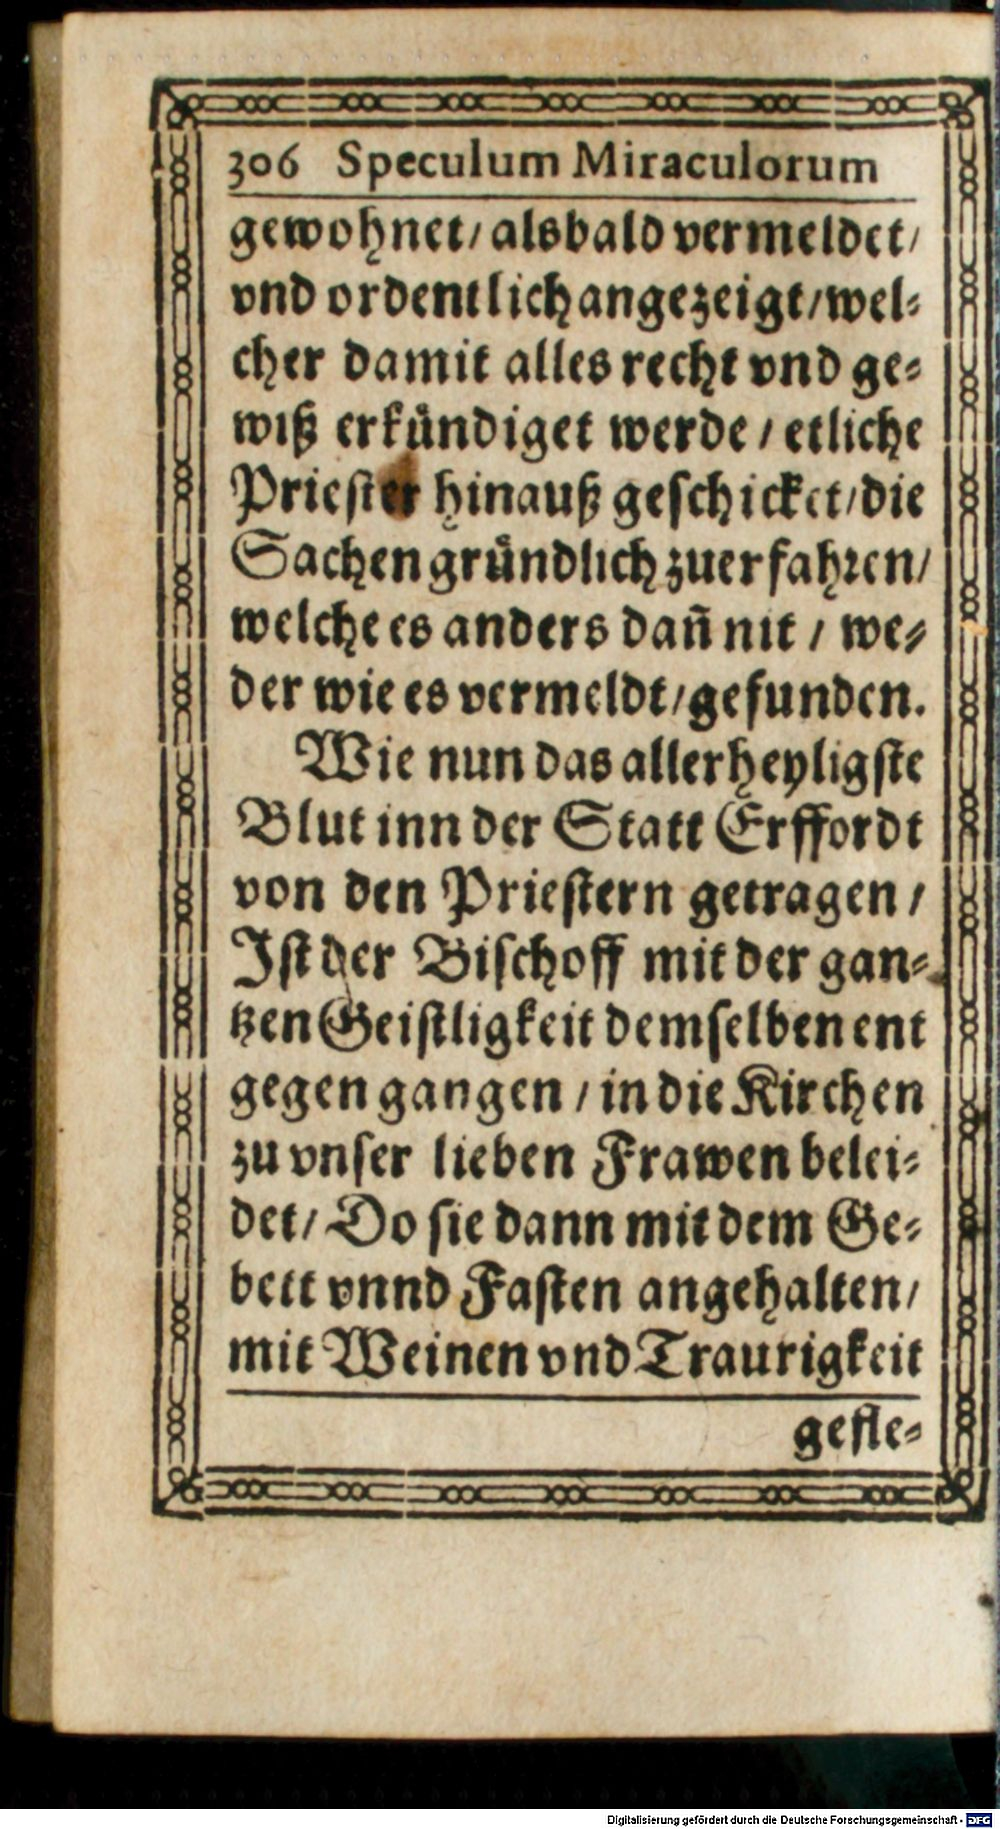 306 Speculum Miraculorum
gewohnet / alsbald vermeldet /
vnd ordentlich angezeigt / wel⸗
cher damit alles recht vnd ge⸗
wiß erkündiget werde / etliche
Priester hinauß geschicket / die
Sachen gründlich zuerfahren /
welche es anders dañ nit / we⸗
der wie es vermeldt / gefunden.
Wie nun das allerheyligste
Blut inn der Statt Erffordt
von den Priestern getragen /
Ist der Bischoff mit der gan⸗
tzen Geistligkeit demselben ent
gegen gangen / in die Kirchen
zu vnser lieben Frawen belei⸗
det / Do sie dann mit dem Ge⸗
bett vnnd Fasten angehalten /
mit Weinen vnd Traurigkeit
gefle⸗
Digitalisierung gefördert durch die Deutsche Forschungsgemeinschaft - DFG